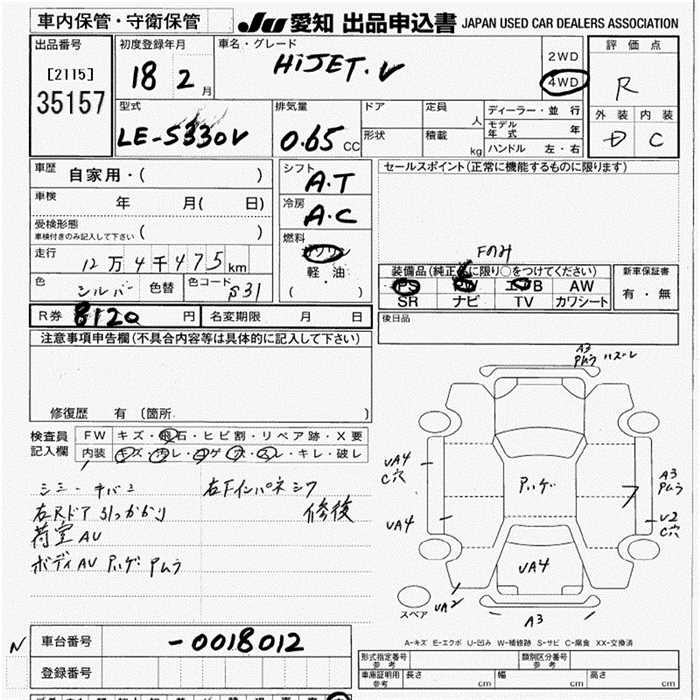 車内保管・守衛保管 JU 愛知 出品申込書 JAPAN USED CAR DEALERS ASSOCIATION
出品番号 初度登録年月 車名・グレード 2WD 評価点
[2115] 18 2月 HiJET.V 4WD R
35157 外装 内装
型式 排気量 ドア 定員 人 ディーラー・並行
LE-S330V 0.65 CC 形状 積載 kg モデル年式 年 D C
ハンドル 左・右
車歴 自家用・( ) シフト A.T セールスポイント(正常に機能するものに限ります)
車検 年 月( 日) 冷房 A.C
受検形態
車検付きのみ記入して下さい ( ) 燃料 ガソリン Fのみ
走行 12万4千475km 軽・油 装備品(純正品に限り○をつけてください) 新車保証書
色 シルバー 色替 色コード S31 (・) PS PW エアB AW 有・無
SR ナビ TV カワシート
R券 8120円 名変期限 月 日 後日品
注意事項申告欄(不具合内容等は具体的に記入して下さい)
A3
修復歴 有 [箇所 ]
検査員 FW キズ・飛石・ヒビ割・リペア跡・X要
記入欄 内装 キズ・汚レ・コゲ・穴・スレ・キレ・破レ
UA4
C穴
A3
Pムラ
右Rドア 引っかかり 修後
UA4 U2
C穴
荷室 AU
ボディAU Pハゲ Pムラ
Pハゲ
UA4
スペア UA2 A3
A-キズ E-エクボ U-凹み W-補修跡 S-サビ C-腐食 XX-交換済
N 車台番号 -0018012
登録番号
形式指定番号 参考 類別区分番号 参考
車庫証明用 参考 長さ cm 幅 cm 高さ cm